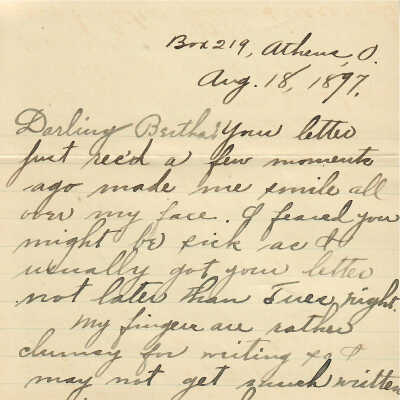 Box 219, Athens, O.
Aug. 18, 1897.
Darling Bertha: Your letter
just rec'd a few moments
ago made me smile all
over my face. I feared you
might be sick as I
usually got your letter
not later than Tues. night.
My fingers are rather
clumsy for writing so I
may not get much written